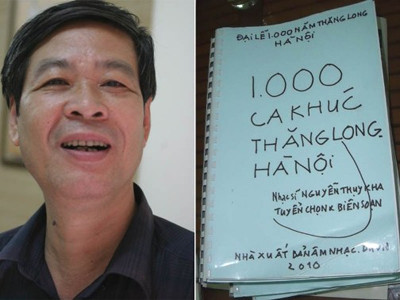 ĐẠI LỄ 1.000 NĂM THĂNG LONG
HÀ NỘI
1.000
CA KHÚC
THĂNG LONG
HÀ NỘI
NHẠC SĨ NGUYỄN THỤY KHA
TUYỂN CHỌN & BIÊN SOẠN
NHÀ XUẤT BẢN ÂM NHẠC
2010